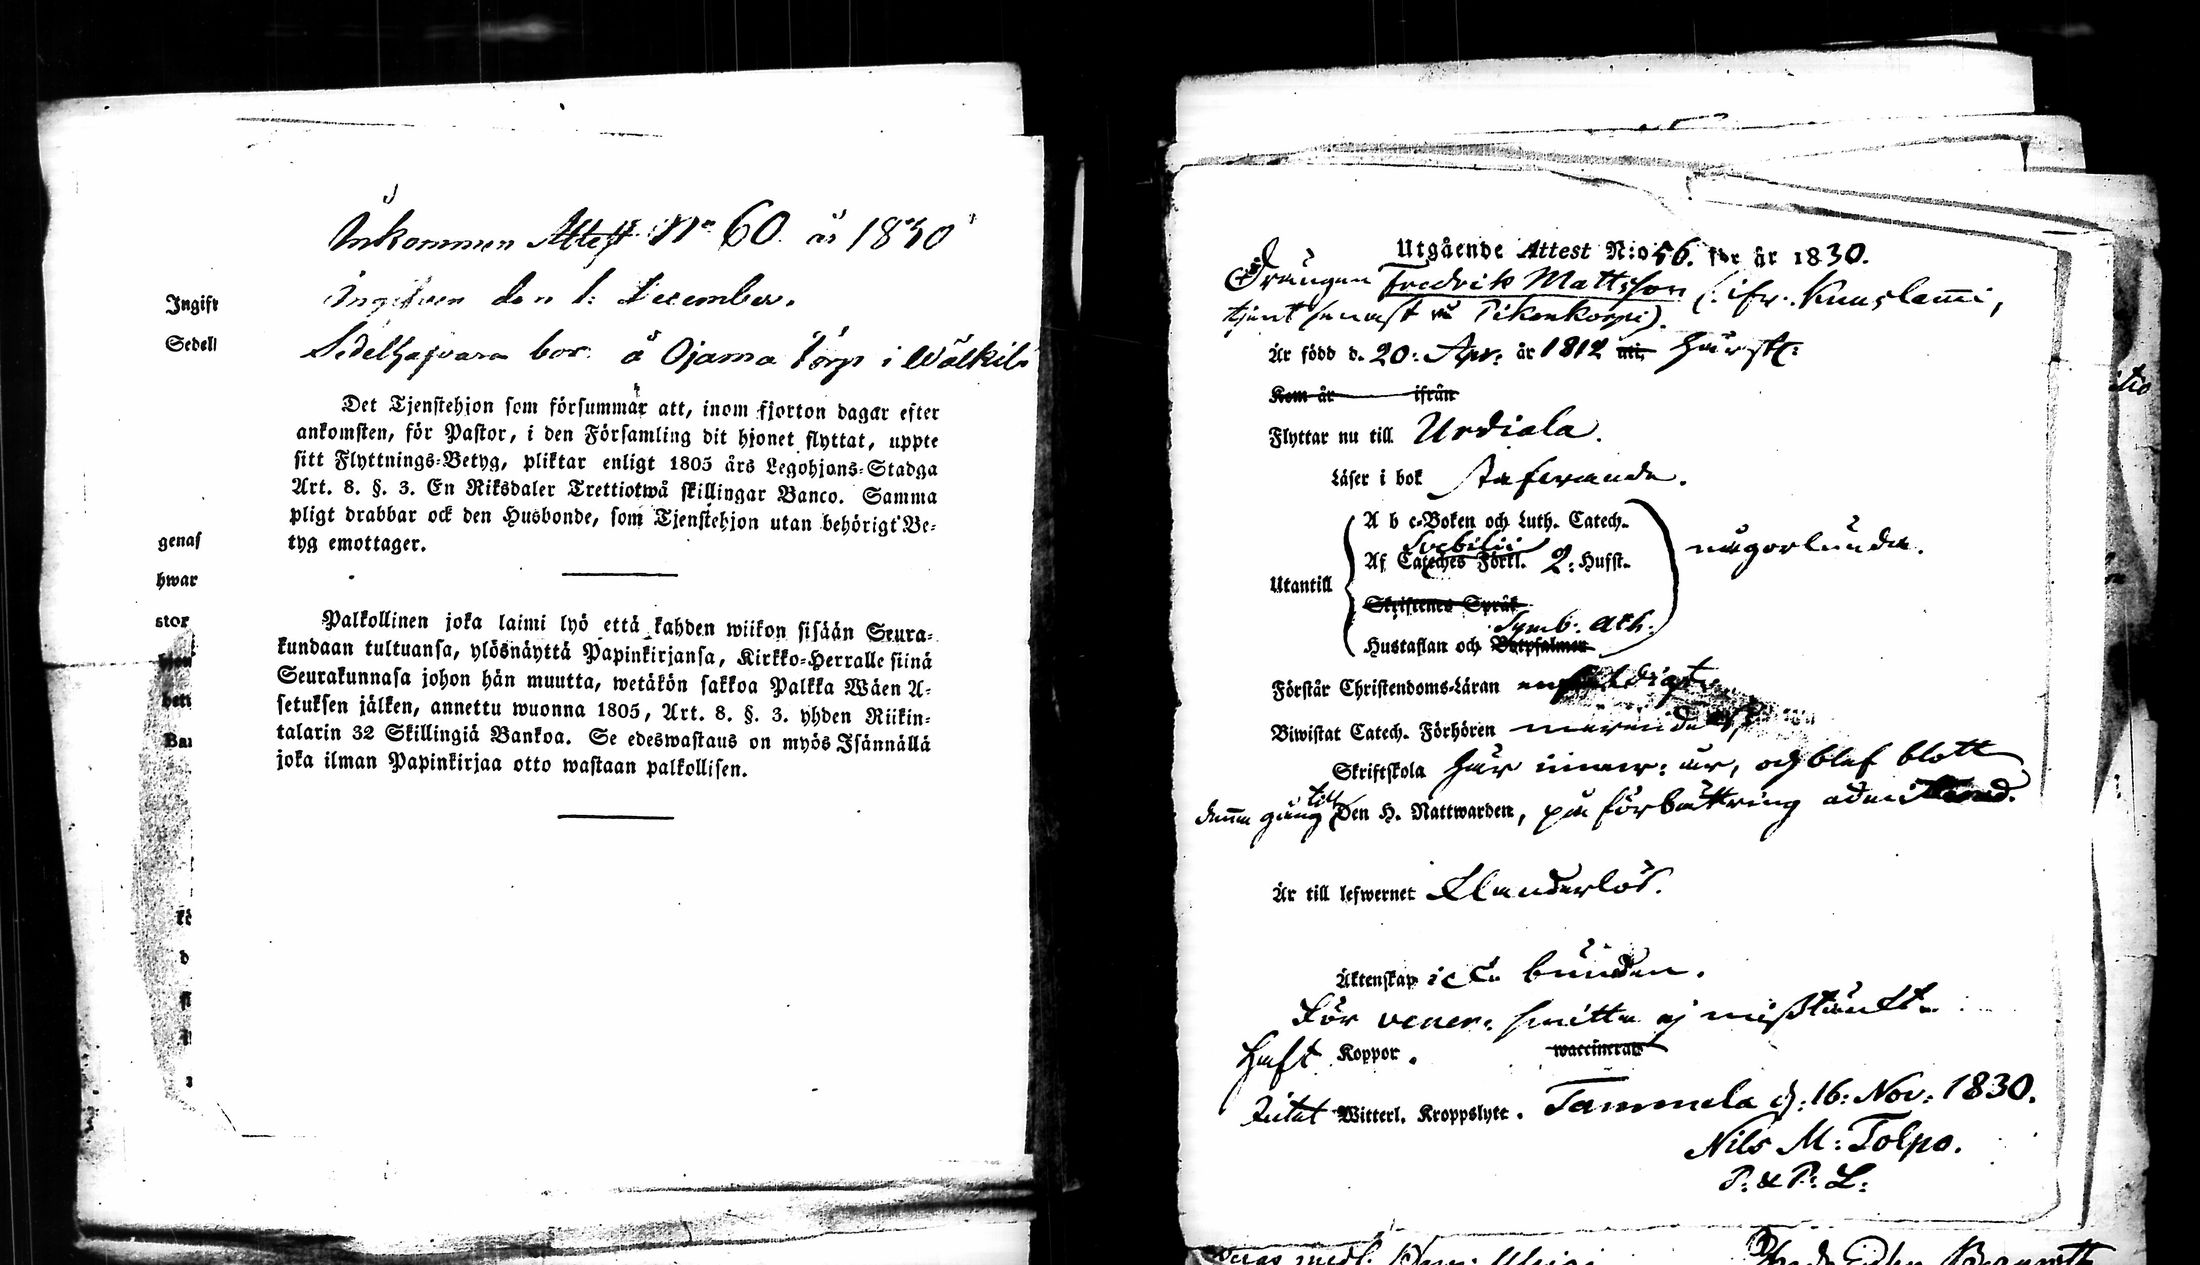 Inkommen Attest No 60. år 1830
Ingifven den 1: December.
Sedelhafvaren bor å Ojama torp i Wälkilä
Ingift
Sedell
Det Tjenstehjon som försummar att, inom fjorton dagar efter
ankomsten, för Pastor, i den Församling dit hjonet flyttat, uppte
sitt Flyttnings-Betyg, pliktar enligt 1805 års Legohjons-Stadga
Art. 8. §. 3. En Riksdaler Trettiotwå skillingar Banco. Samma
pligt drabbar ock den Husbonde, som Tjenstehjon utan behörigt Be-
tyg emottager.
genaf
hwar
stor
Palkollinen joka laimi lyö että kahden wiikon sisään Seura-
kundaan tultuansa, ylösnäyttä Papinkirjansa, Kirkko-Herralle siinä
Seurakunnasa johon hän muutta, wetäkön sakkoa Palkka Wäen A-
setuksen jälken, annettu wuonna 1805, Art. 8. §. 3. yhden Riikin-
talarin 32 Skillingiä Bankoa. Se edeswastaus on myös Isännällä
joka ilman Papinkirjaa otto wastaan palkollisen.
Utgående Attest N:o 56. för år 1830.
Drängen Fredrik Mattsson (: ifr. Kuuslami,
tjent senast på Pikonkorpi).
Är född d. 20: Apr: år 1812 uti, härst:
Kom år ifrån
Flyttar nu till Urdiala.
Läser i bok stafvande.
A b c-Boken och Luth. Catech.
Svebilii
Af Cateches Förkl. 2: Hufst.
någorlunda.
Utantill
Skriftenes Språk
Symb: Ath:
Hustaflan och Botpsalmen
Förstår Christendoms-Läran enfaldigt
Biwistat Catech. Förhören
Skriftskola här innev: år, och blef blott
denna gång till Den H. Nattwarden, på förbättring admitterad.
Är till lefwernet Klanderlös.
Äktenskap icke bunden.
För vener: smitta ej misstänkt.
Haft Koppor. waccinerad
Witterl. Kroppslyte. Tammela d: 16: Nov: 1830.
Nils M: Tolpo.
P: & P: L: